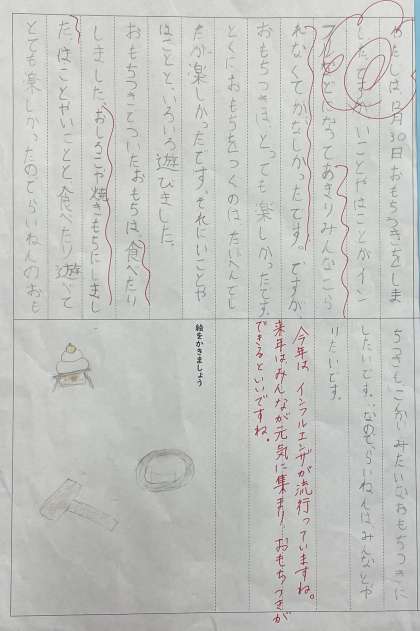 わたしは12月30日おもちつきをしま
した。ですが、いことやはことがイン
フルエンザになってあまりみんなこら
れなくてかなしかったです。ですが
おもちつきは、とっても楽しかったです。
とくにおもちをつくのはたいへんでし
たが楽しかったです。それにいことや
はことと、いろいろ遊びました。
おもちつきでついたおもちは、食べたり
しました。おしるこや焼きもちにしまし
た。はことやいことと食べたり遊べて
とても楽しかったのでらいねんのおも
ちつきもこんかいみたいなおもちつきに
したいです。なのでらいねんはみんなとや
りたいです。
今年は、インフルエンザが流行っていますね。
来年はみんなが元気に集まり、おもちつきが
できるといいですね。
絵をかきましょう